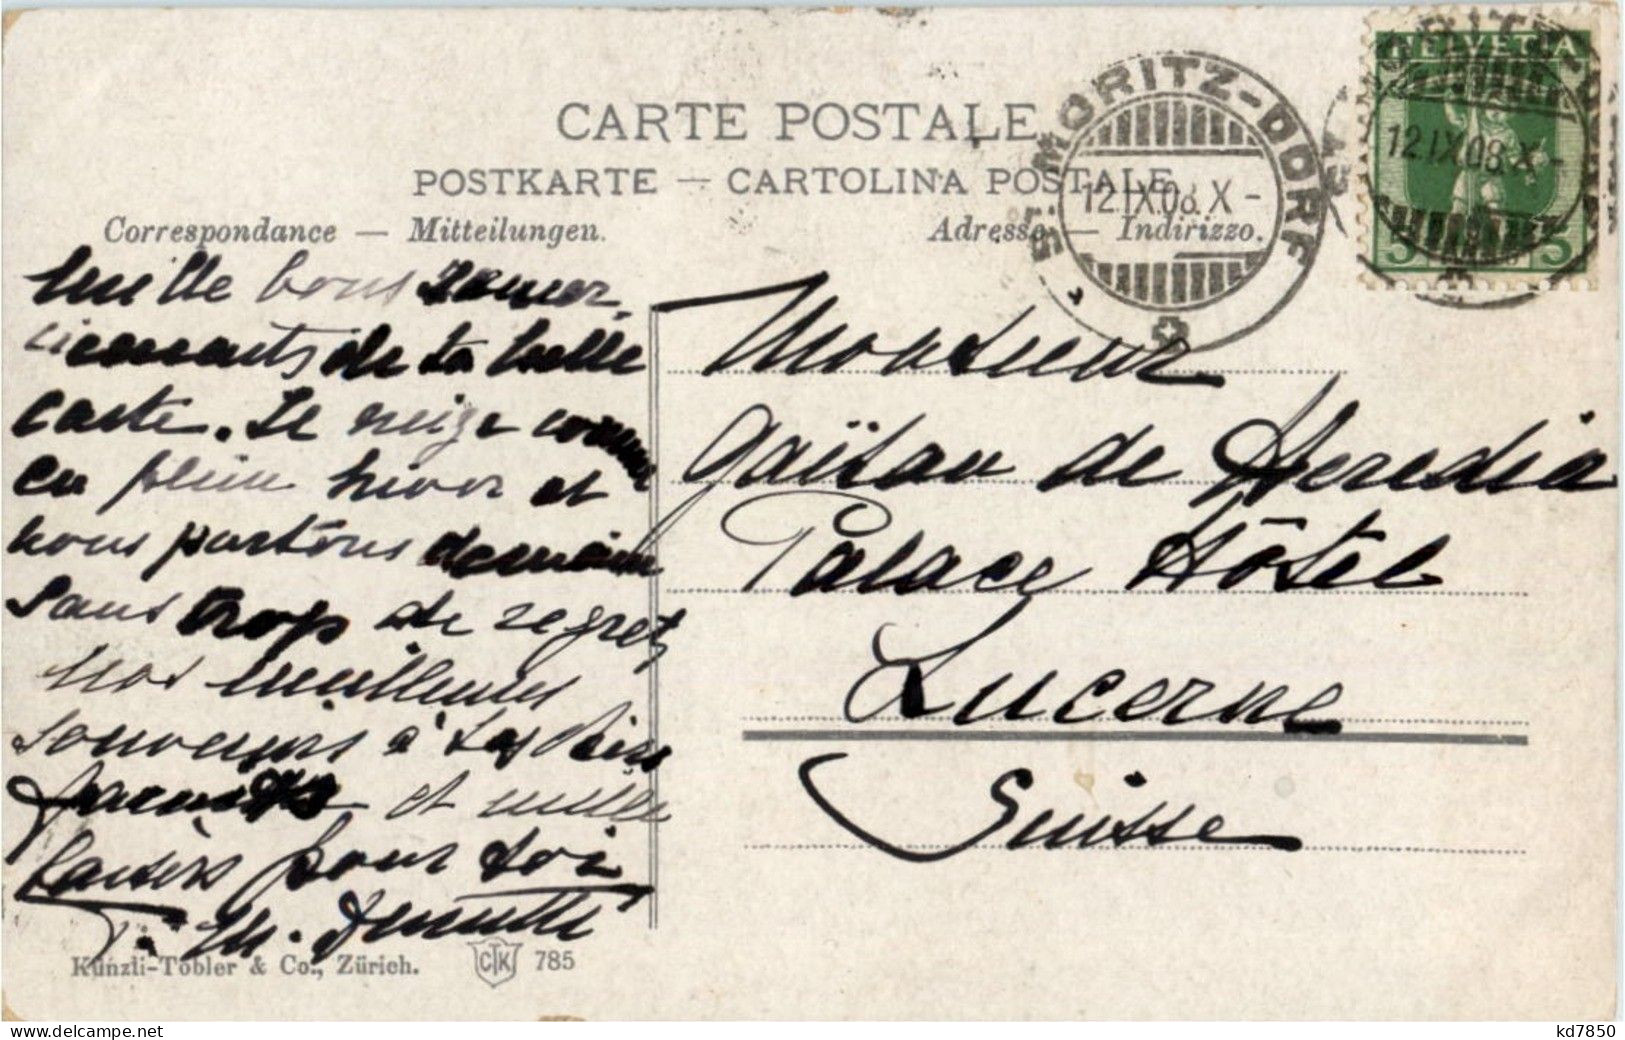 CARTE POSTALE
POSTKARTE — CARTOLINA POSTALE
Correspondance — Mitteilungen.
Adresse — Indirizzo.
ST. MORITZ-DORF
12.IX.08.X-
HELVETIA
12.IX.08.X-
5 5
Mille bons remer-
ciements de ta belle
carte. Il neige comme
en plein hiver et
nous partons demain
sans trop de regret
Nos meilleurs
souvenirs à tes chers
parents et mille
baisers pour toi
M.
Monsieur
Gaëtan de Heredia
Palace Hôtel
Lucerne
Suisse
Künzli-Tobler & Co., Zürich.
CTK 785
kd7850
www.delcampe.net